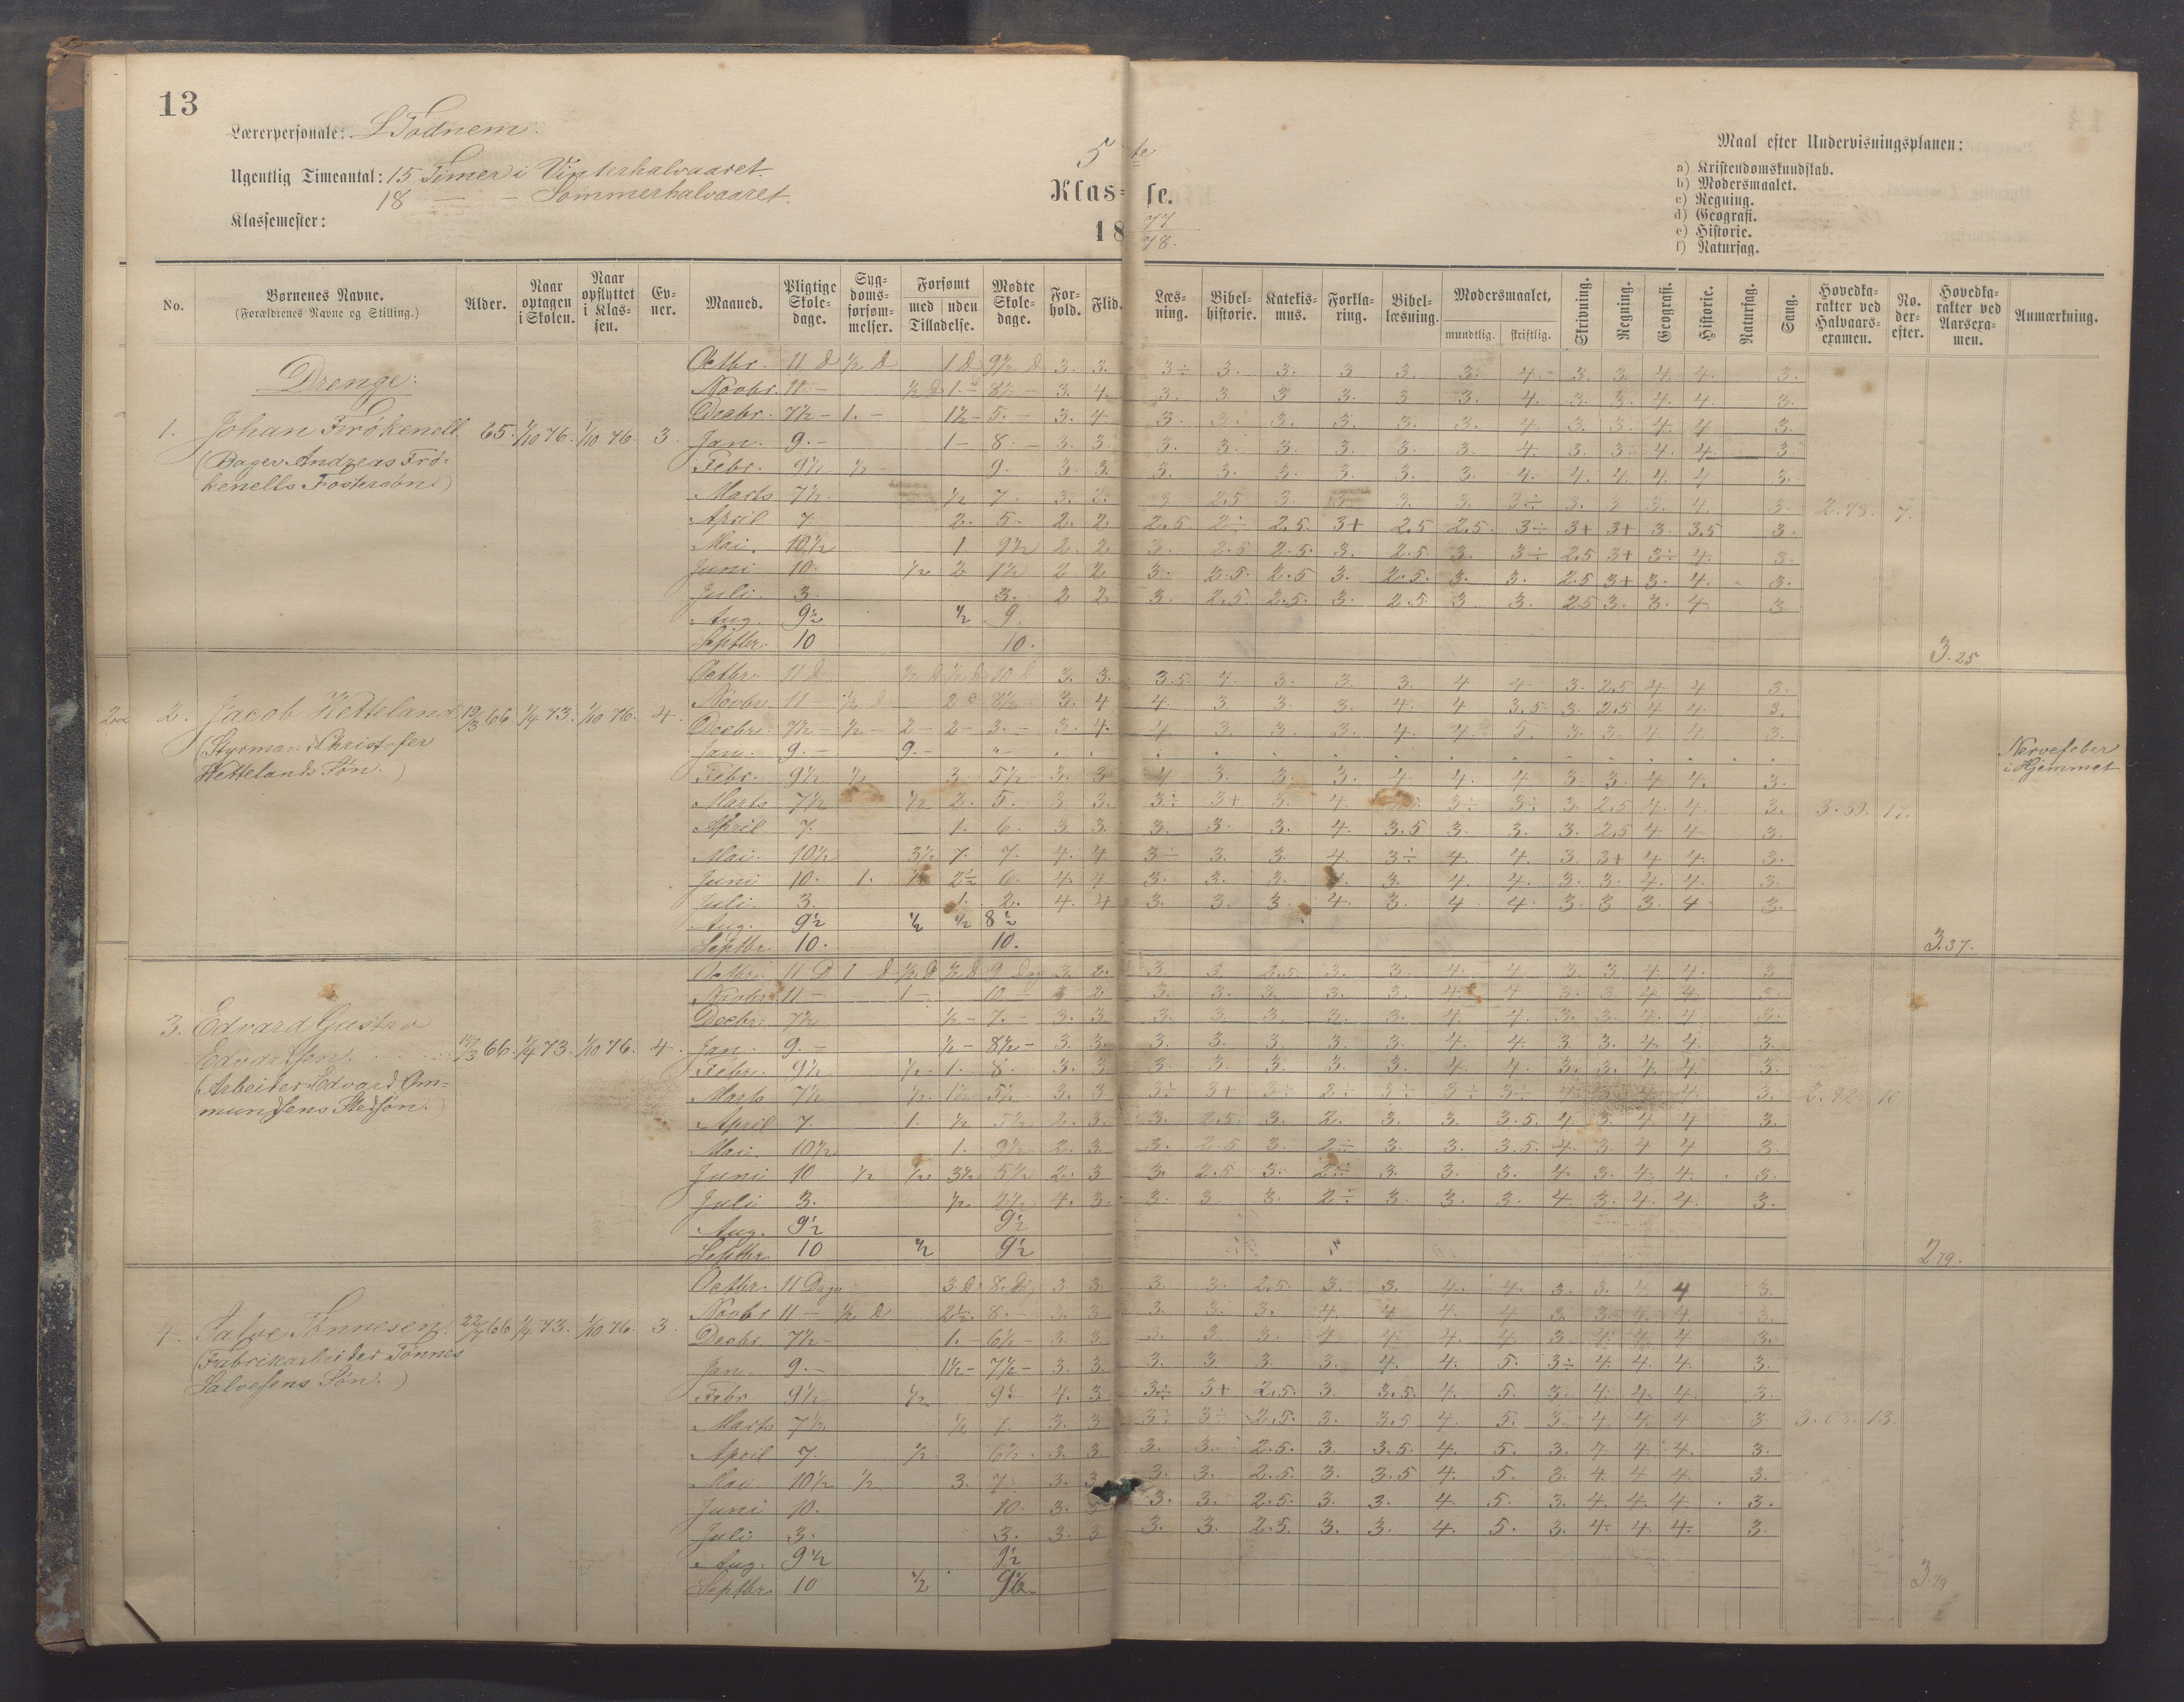 13
Lærerpersonale: LTodnem.
Ugentlig Timeantal: 15 Timer i Vinterhalvaaret.
18 — - Sommerhalvaaret.
Klassemester:
5te
Klas= se.
18 77/78.
Maal efter Undervisningsplanen:
a) Kristendomskundskab.
b) Modersmaalet.
c) Regning.
d) Geografi.
e) Historie.
f) Naturfag.
No. Børnenes Navne. (Forældrenes Navne og Stilling.) Alder. Naar optagen i Skolen. Naar opflyttet i Klassen. Evner. Maaned. Pligtige Skoledage. Sygdomsforsømmelser. Forsømt med uden Tilladelse. Mødte Skoledage. Forhold. Flid. Læsning. Bibelhistorie. Katekismus. Forklaring. Bibellæsning. Modersmaalet, mundtlig. skriftlig. Skrivning. Regning. Geografi. Historie. Naturfag. Sang. Hovedkarakter ved Halvaarsexamen. No. derefter. Hovedkarakter ved Aarsexamen. Anmærkning.
Drenge:
Octbr. 11 D ½ D 1 D 9½ D 3. 3. 3÷ 3. 3. 3 3. 3. 4. 3. 3. 4. 4. 3.
Novbr. 11 — ½ D 1 — 8½ — 3. 4. 3. 3. 3 3. 3 3. 4. 3. 3. 4. 4. 3.
Decbr. 7½ — 1. — 1½ — 5. — 3. 4. 3. 3. 3. 3. 3. 3. 4. 3. 3. 4. 4 3.
1. Johan Frøkenell 65. 1/10 76. 1/10 76. 3
(Bager Andreas Frø-
kenells Fostersøn.)
Jan. 9. — 1 — 8. — 3. 3. 3. 3. 3. 3. 3. 3. 4. 3. 3. 4. 4. 3.
Febr. 9½ ½ — 9. 3. 3. 3. 3. 3. 3. 3. 3. 4. 4. 4. 4. 4 3.
Marts 7½. ½ 7. 3. 3 2.5 3. 3. 3. 3÷ 3. 3 3. 4. 3. 2.78. 7.
April 7 2. 5. 2. 2 2.5 2÷ 2.5. 3+ 2.5 2.5. 3÷ 3+ 3+ 3. 3.5 3.
Mai. 10½ 1 9½ 2. 2 3. 2.5 2.5. 3. 2.5. 3. 3÷ 2.5 3+ 3÷ 4. 3.
Juni 10. ½ 2 2 2 3. 2.5. 2.5 3. 2.5. 3. 3. 2.5 3+ 3. 4. 3.
Juli. 3. 3. 2 2 3. 2.5. 2.5. 3. 2.5. 3 3. 2.5 3. 3. 4. 3.
Aug. 9½ ½ 9.
Septbr. 10 10. 3.25
Octbr. 11 D ½ D ½ D 10 D 3. 3. 3.5 4. 3. 3. 3. 4 4. 3. 2.5 4 4 3.
Novbr. 11 — ½ D 2 8½ — 3. 4 4 3. 3. 3. 4. 4 3.5. 3. 2.5 4 4. 3.
22 2. Jacob Hetteland 19/3 66. 1/4 73. 1/10 76. 4.
(Styrmand Christofer
Hettelands Søn.)
Decbr. 7½ — ½ — 2 — 2 — 3. — 3. 4. 4 3. 3. 3. 4. 4. 5. 3. 3. 4 4. 3.
Jan. 9. — 9. — " —
Nervefeber
i Hjemmet
Febr. 9½ ½ 3. 5½ — 3. 3 4 3. 3. 3. 4. 4. 4 3. 3. 4 4. 3.
Marts 7½ ½ 2. 5. 3 3. 3÷ 3+ 3. 4. 3÷ 3÷ 3. 2.5 4. 4. 3. 17.
April 7. 1. 6. 3 3. 3. 3. 3. 4. 3.5 3. 3. 3. 2.5 4 4 3.
Mai. 10½ 3½ 7. 7. 4. 4 3÷ 3. 3. 4 3÷ 4. 4. 3. 3+ 4 4. 3.
Juni 10. 1. 2½ 6. 4. 4 3. 3. 3. 4. 3. 4 4. 3. 3. 4. 4. 3.
Juli. 3. 1. 2. 4. 4 3. 3. 3. 4. 3. 4 4 3. 3 3. 4 3.
Aug. 9½ ½ ½ 8½
Septbr. 10. 10. 3.37.
Octbr. 11 D 1 D ½ D ½ D 9 Dag 3. 2. 3. 3. 2.5 3. 3. 4. 4. 3. 3 4 4. 3
Novbr. 11 — 1 — 10 — 3 2 3. 3. 3. 3. 3. 4. 4 3. 3. 4. 4. 3.
3. Edvard Gustav
Edvardsen. 17/3 66. 1/4 73. 1/10 76. 4.
(Arbeider Edvard Om-
mundsens Stedsøn.)
Decbr. 7½ ½ — 7. — 3. 3 3. 3. 3. 3. 3. 4 4. 3. 3. 4 4. 3.
Jan. 9. — ½ — 8½ — 3. 3. 3. 3. 3. 3. 3. 4 4. 3. 3. 4 4. 3.
Febr. 9½ ½ — 1. 8. 3. 3 3. 3. 3. 3. 3. 4 4. 3. 3. 4 4. 3.
Marts 7½ ½. 1½ 5½ 3. 3 3÷ 3+ 3÷ 2÷ 3÷ 3÷ 3÷ 4 3. 2.92. 10
April 7. 1. ½ 5½ 2. 3. 3. 2.5. 3. 2. 3. 3. 3.5. 4. 3. 4 4 3.
Mai. 10½ 1. 9½ 2. 3. 3. 2.5 3. 2÷ 3. 3. 3.5. 4. 3. 4 4 3.
Juni 10 ½ ½. 3½ 5½ 2. 3 3. 2.5 3. 2÷ 3. 3. 3. 4. 3. 4. 4. 3.
Juli 3. ½. 2½ 4. 3. 3. 3. 3. 2÷ 3. 3. 3. 4. 3. 4. 4. 3.
Aug. 9½ 9½
Septbr. 10 ½ 9½ 2.79.
Octbr. 11 Dage 3 D. 8. D. 3. 3. 3 3. 2.5. 3. 3. 4. 4. 3. 3. 4 4 3.
Novbr. 11 — ½ D 2½. 8. — 3. 3 3. 3. 3. 4 4 4. 4 3. 3. 4. 4. 3.
4. Salve Tønnesen. 22/7 66 1/4 73. 1/10 76. 3
(Fabrikarbeider Tønnes
Salvesens Søn.)
Decbr. 7½ — 1. — 6½ — 3. 3. 3. 3 3. 4 4. 4. 4. 3. 4. 4. 4 3.
Jan. 9. — 1½ — 7½ — 3. 3. 3. 3 3. 3. 4. 4. 5. 3÷ 4. 4. 4. 3.
Febr. 9½ ½ 9½ 4. 3 3÷ 3+ 2.5. 3. 3.5. 4. 5. 3. 4. 4. 4. 3.
Marts 7½ ½ 7. 3. 3 3÷ 3÷ 2.5. 3. 3.5 4. 5. 3. 4. 4. 4. 3 3.08. 13.
April 7. ½ 6½ 3. 3. 3. 3. 2.5. 3. 3.5. 4. 5. 3. 4 4. 4. 3.
Mai. 10½ ½ 3. 7. 3. 3 3. 3. 2.5. 3. 3.5 4. 5. 3. 4. 4 4. 3.
Juni 10. 10. 3. 3 3. 3. 2.5. 3. 3. 4. 5. 3. 4. 4. 4. 3.
Juli 3. 3. 3. 3 3. 3. 2.5. 3. 3. 4. 5. 3. 4. 4. 4. 3.
Aug. 9½ 9½
Septbr. 10 ½ 9½